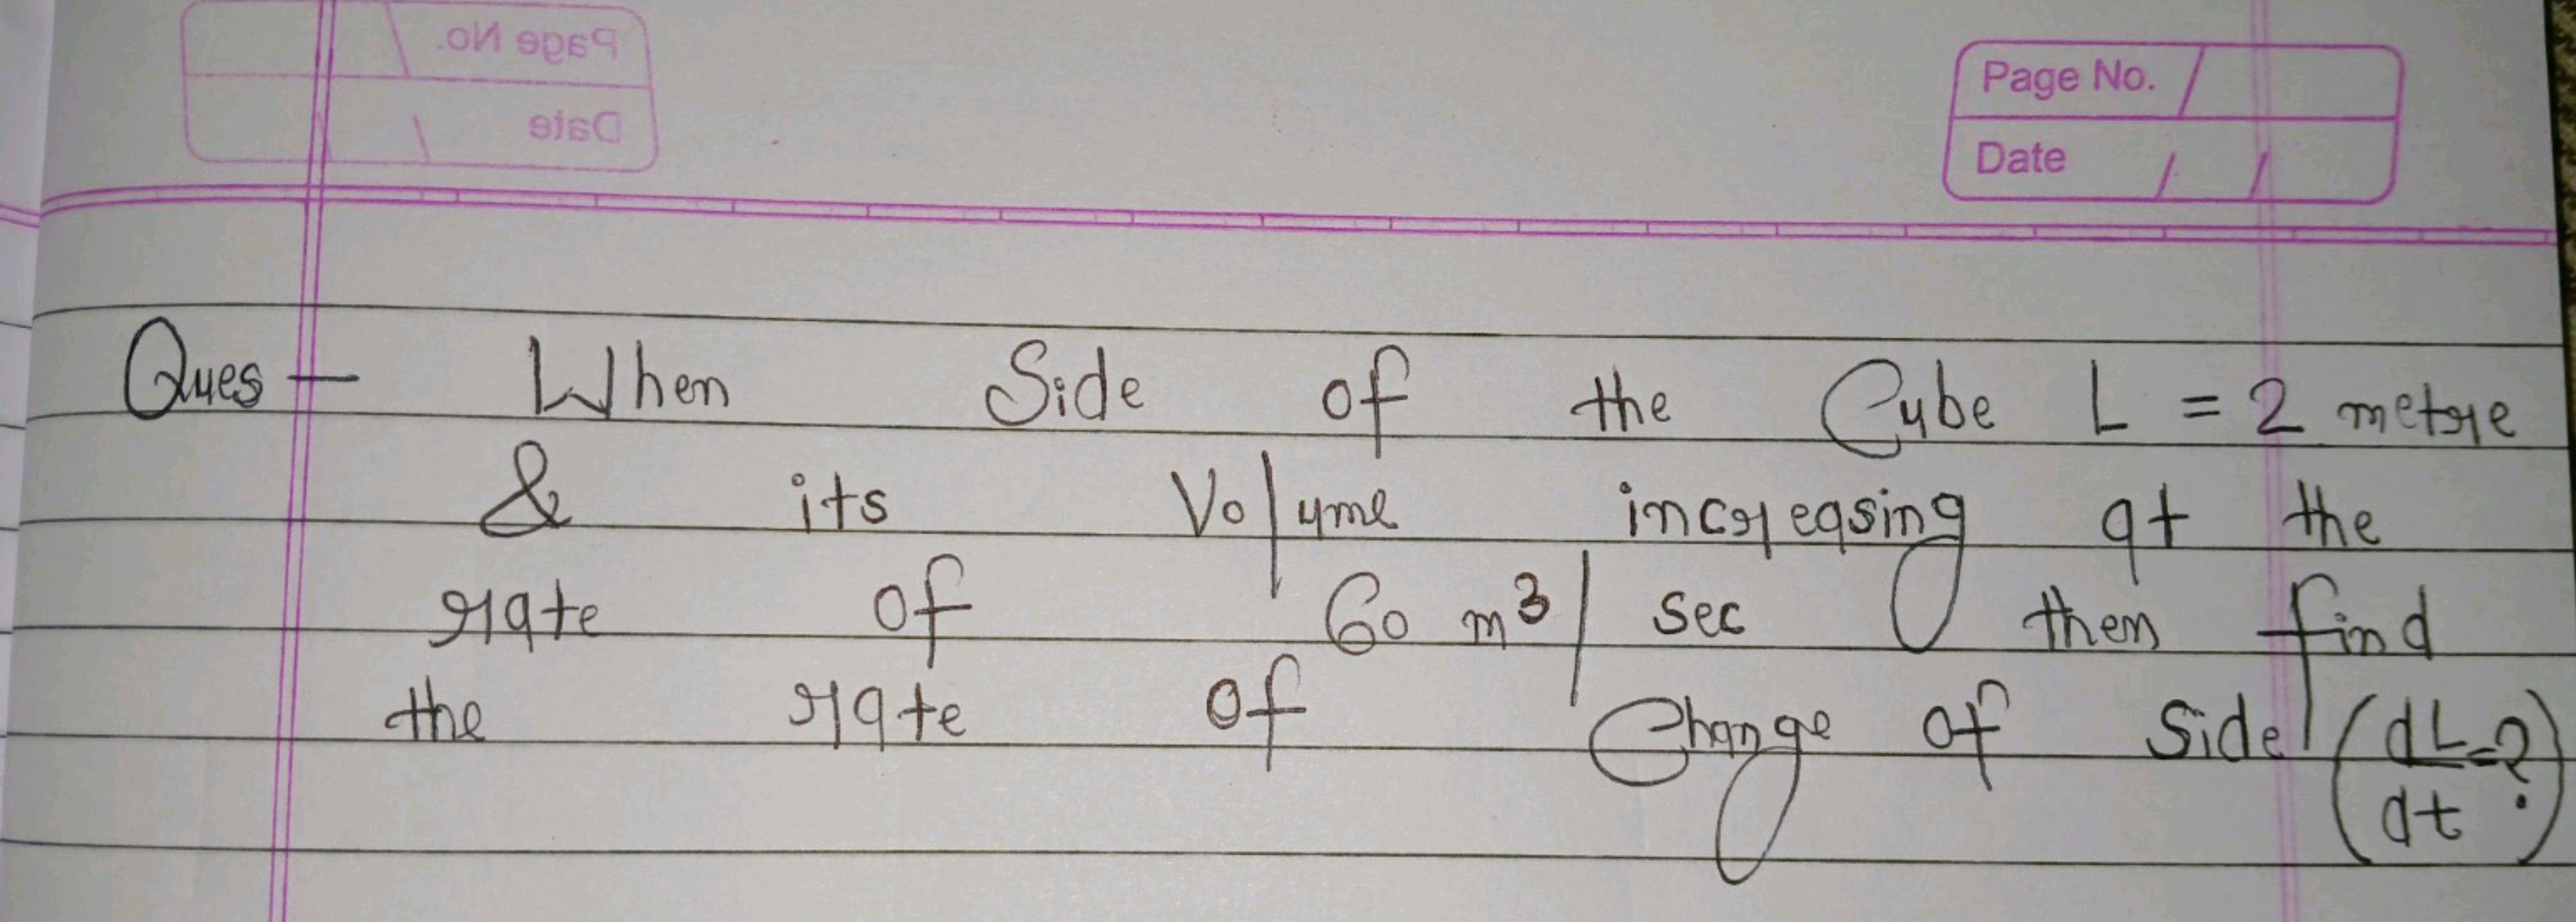 Page No.
Date
Page No.
Date / /
Ques - When Side of the Cube L = 2 metre
& its Volume increasing at the
rate of 60 m³/sec then find
the rate of Change of Side (dL/dt=?)